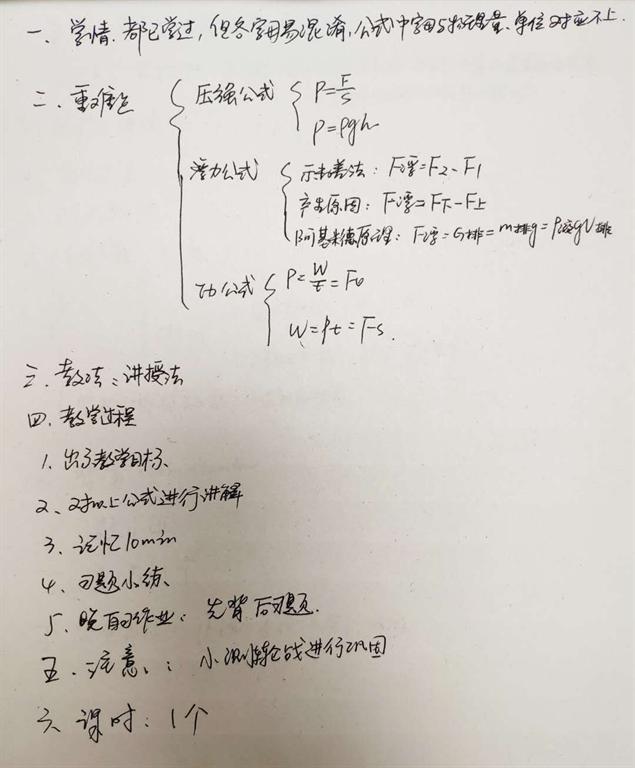 一、学情:都已学过,但各字母易混淆,公式中字母与物理量、单位对应不上.
二、重难点
压强公式
P=F/S
P=ρgh
浮力公式
示重差法:F浮=F2-F1
产生原因:F浮=F下-F上
阿基米德原理:F浮=G排=m排g=ρ液gV排
功公式
P=W/t=Fv
W=Pt=Fs.
三、教法:讲授法
四、教学过程
1、出示教学目标、
2、对以上公式进行讲解
3、记忆10min
4、习题小练、
5、晚自习作业:先背后习题.
五、注意:小测轮战进行巩固
六、课时:1个